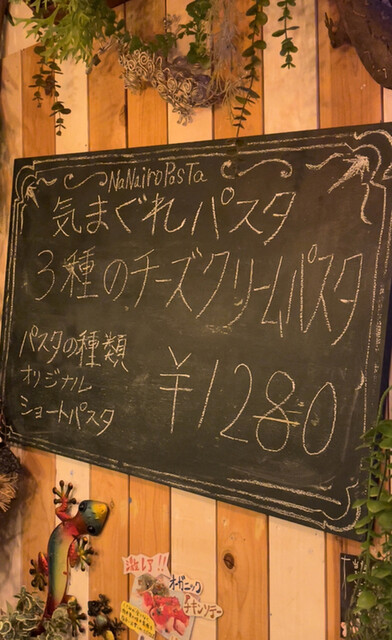 NaNairoPasTa
気まぐれパスタ
3種のチーズクリームパスタ
パスタの種類
オリジナル
ショートパスタ
￥1280
激レア!!
オーガニック